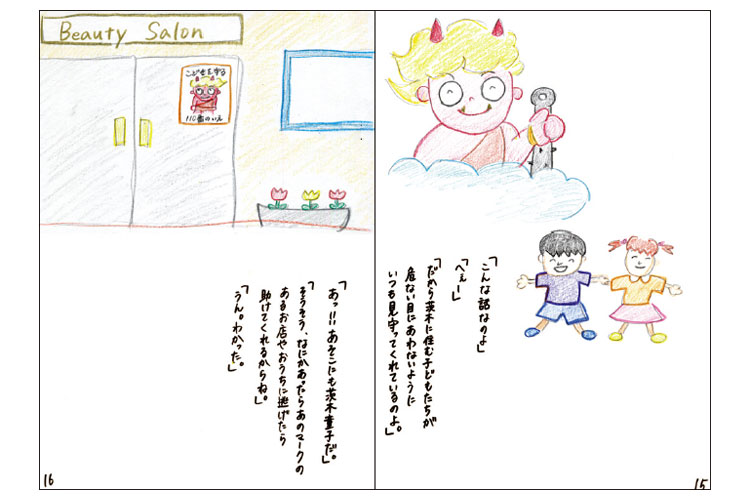 「こんな話なのよ」
「へぇー」
「だから茨木に住む子どもたちが
危ない目にあわないように
いつも見守ってくれているのよ。」
15
Beauty Salon
こどもを守る
110番のいえ
「あッ!!あそこにも茨木童子だ。」
「そうそう、なにかあったらあのマークの
あるお店やおうちに逃げたら
助けてくれるからね。」
「うん。わかった。」
16